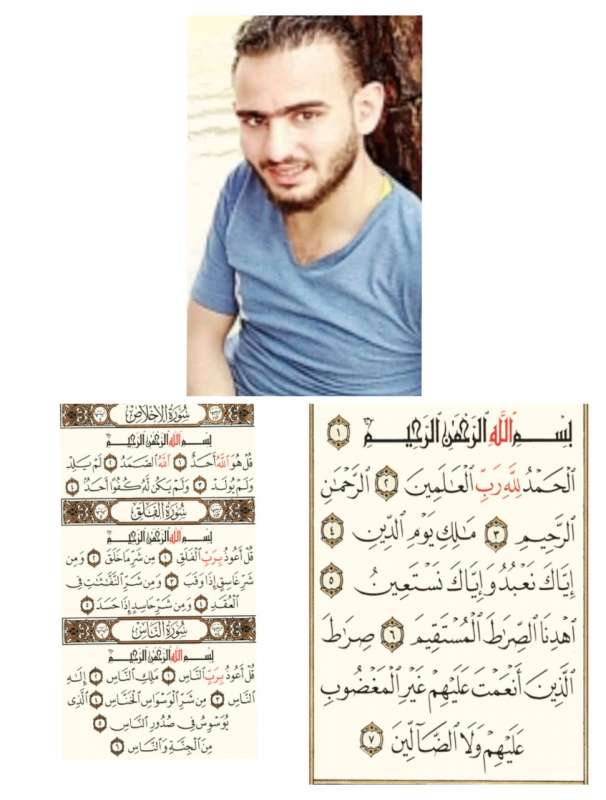 سورة الإخلاص
بسم الله الرحمن الرحيم
قُلْ هُوَ ٱللَّهُ أَحَدٌ ١ ٱللَّهُ ٱلصَّمَدُ ٢ لَمْ يَلِدْ
وَلَمْ يُولَدْ ٣ وَلَمْ يَكُن لَّهُۥ كُفُوًا أَحَدٌ ٤
سورة الفلق
بسم الله الرحمن الرحيم
قُلْ أَعُوذُ بِرَبِّ ٱلْفَلَقِ ١ مِن شَرِّ مَا خَلَقَ ٢ وَمِن
شَرِّ غَاسِقٍ إِذَا وَقَبَ ٣ وَمِن شَرِّ ٱلنَّفَّٰثَٰتِ فِى
ٱلْعُقَدِ ٤ وَمِن شَرِّ حَاسِدٍ إِذَا حَسَدَ ٥
سورة الناس
بسم الله الرحمن الرحيم
قُلْ أَعُوذُ بِرَبِّ ٱلنَّاسِ ١ مَلِكِ ٱلنَّاسِ ٢ إِلَٰهِ
ٱلنَّاسِ ٣ مِن شَرِّ ٱلْوَسْوَاسِ ٱلْخَنَّاسِ ٤ ٱلَّذِى
يُوَسْوِسُ فِى صُدُورِ ٱلنَّاسِ ٥
مِنَ ٱلْجِنَّةِ وَٱلنَّاسِ ٦
بِسْمِ ٱللَّهِ ٱلرَّحْمَٰنِ ٱلرَّحِيمِ ١
ٱلْحَمْدُ لِلَّهِ رَبِّ ٱلْعَٰلَمِينَ ٢ ٱلرَّحْمَٰنِ
ٱلرَّحِيمِ ٣ مَٰلِكِ يَوْمِ ٱلدِّينِ ٤
إِيَّاكَ نَعْبُدُ وَإِيَّاكَ نَسْتَعِينُ ٥
ٱهْدِنَا ٱلصِّرَٰطَ ٱلْمُسْتَقِيمَ ٦ صِرَٰطَ
ٱلَّذِينَ أَنْعَمْتَ عَلَيْهِمْ غَيْرِ ٱلْمَغْضُوبِ
عَلَيْهِمْ وَلَا ٱلضَّآلِّينَ ٧